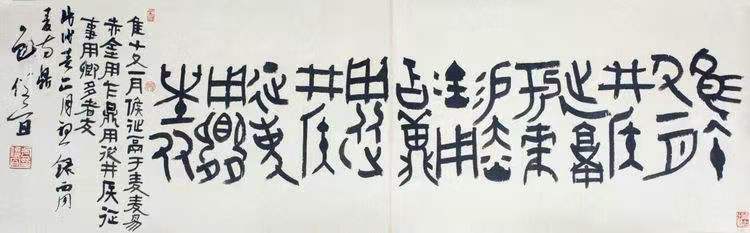 隹十
又一月
井侯
延鬲
于麦
易赤
金用
乍鼎
用从
井侯
征事
用卿
友
隹十又一月侯延鬲于麦麦易
赤金用乍鼎用从井侯征
事用卿多者友
正月初一录西周
麦方鼎